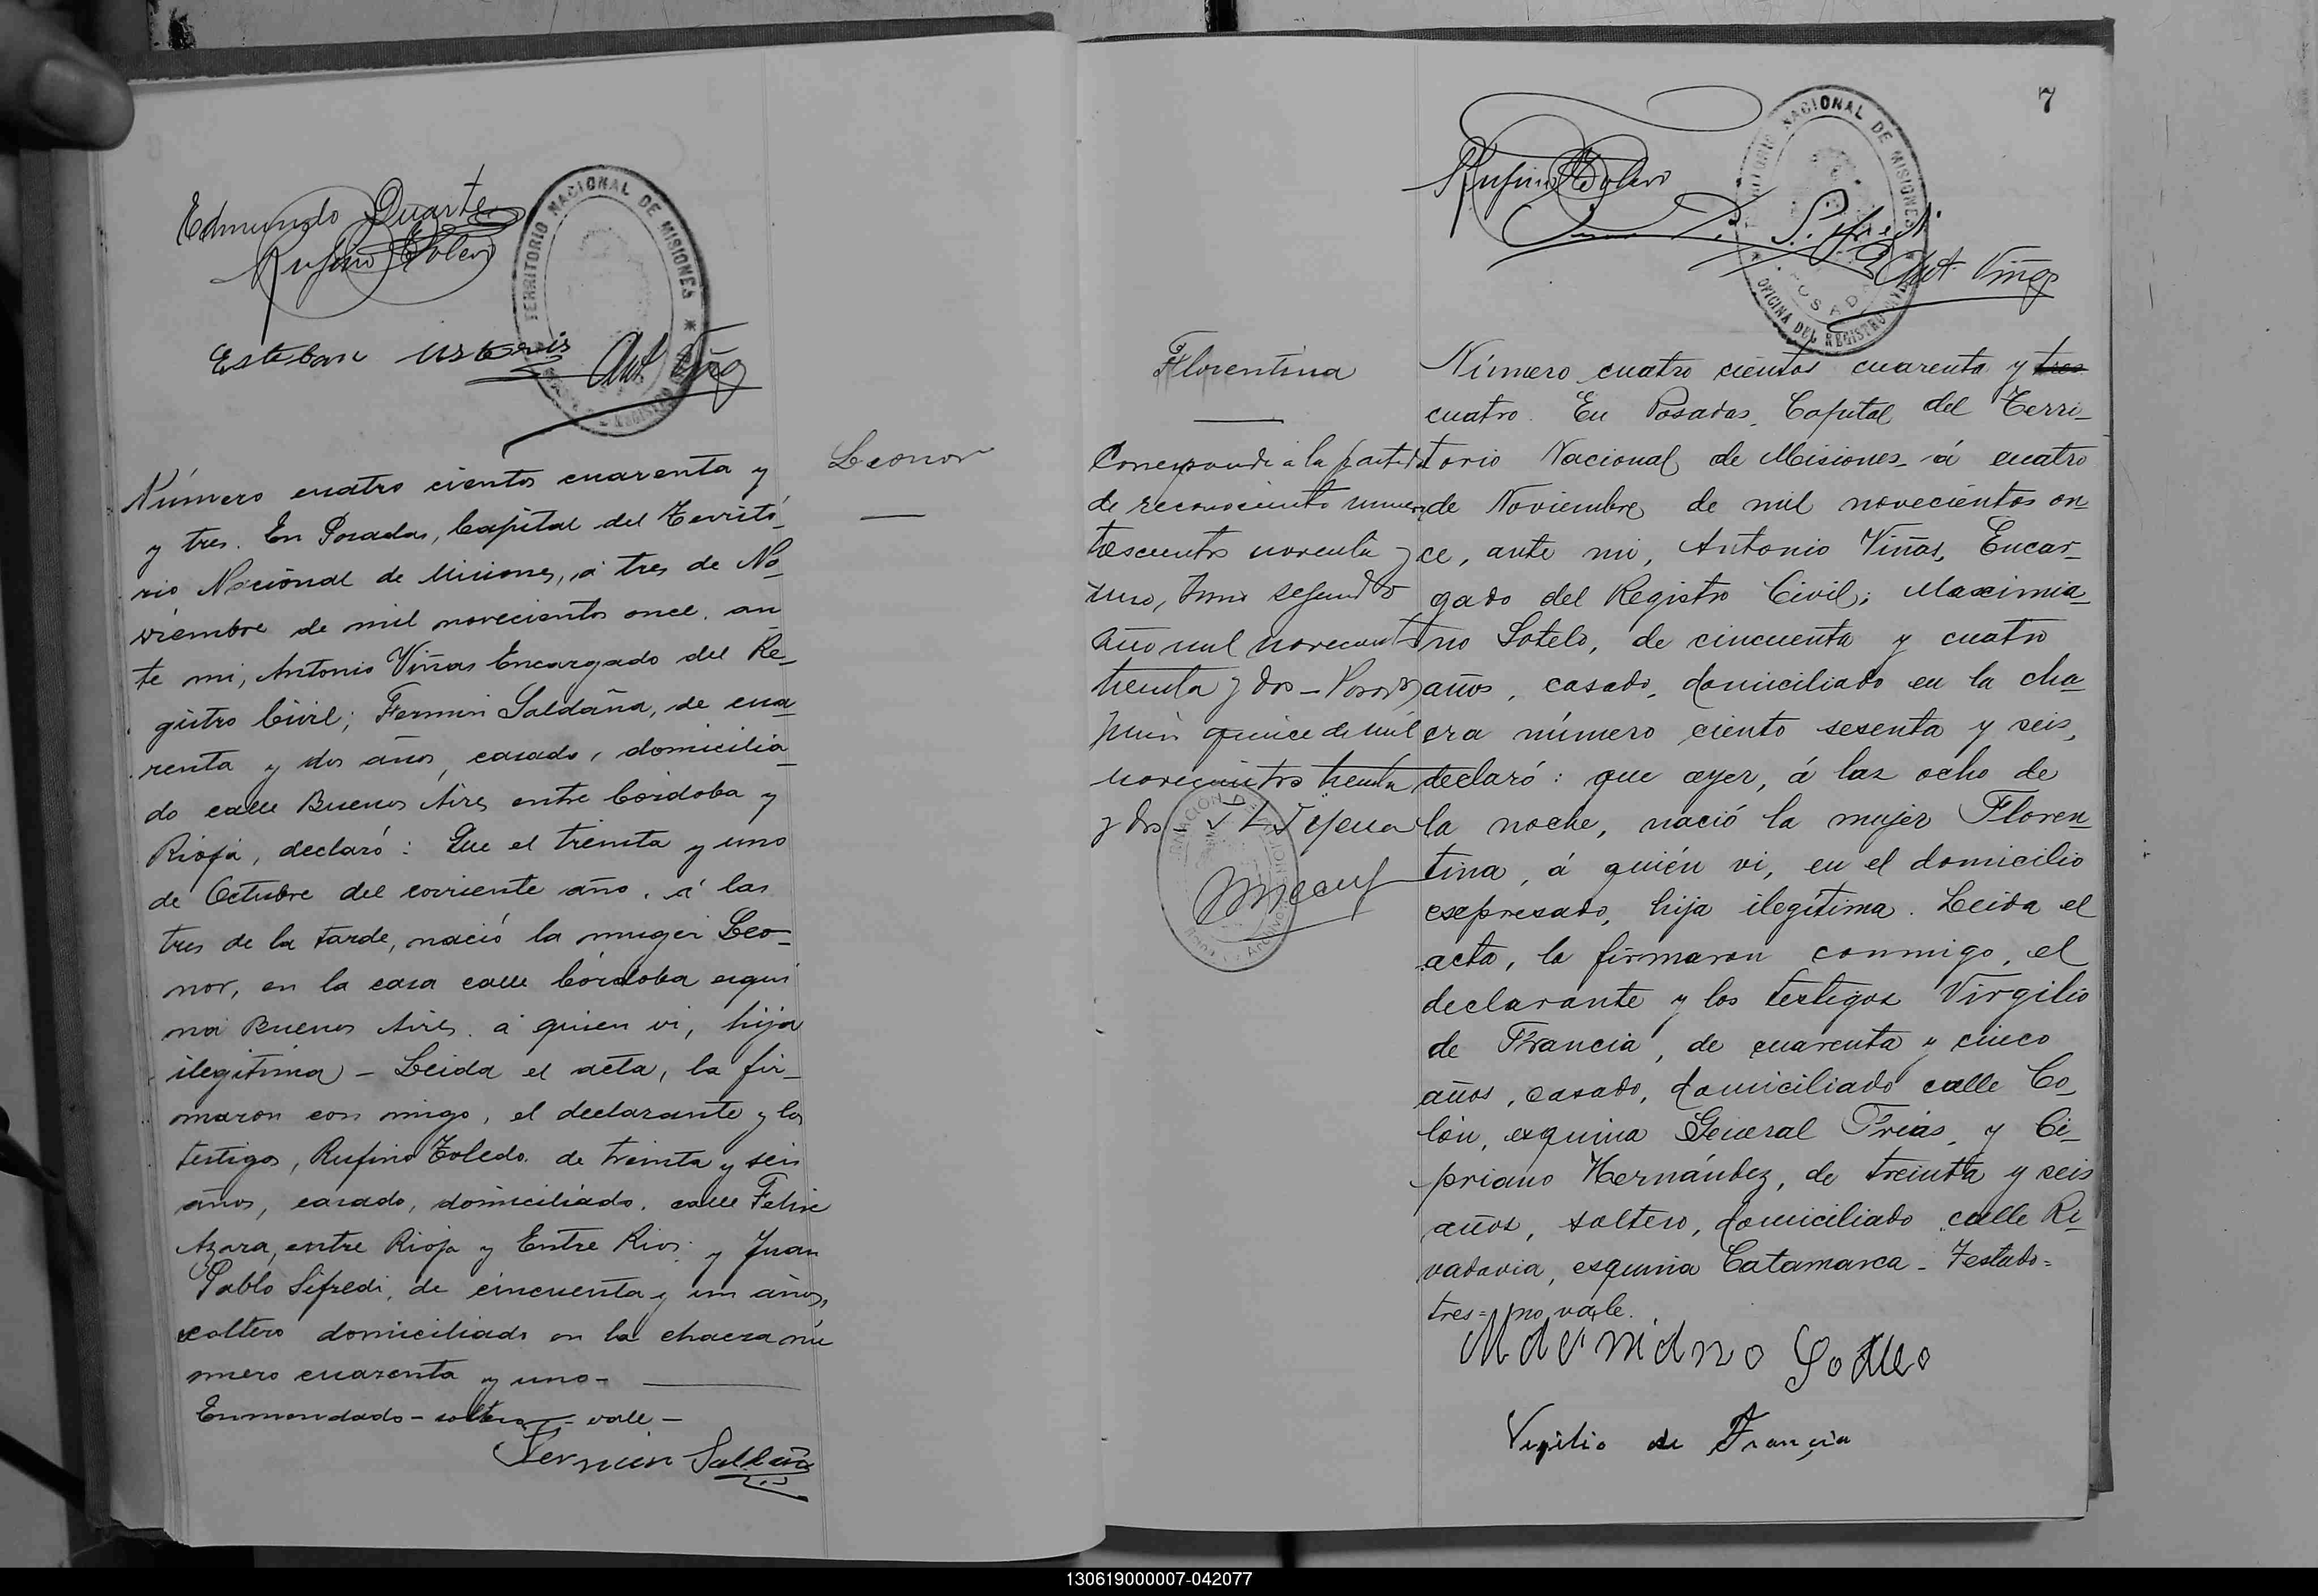 Edmundo Duarte
Rufino Toledo
TERRITORIO NACIONAL DE MISIONES
Esteban
Ant. Viñas
Número cuatro cientos cuarenta y
y tres. En Posadas, Capital del Territo-
rio Nacional de Misiones, á tres de No-
viembre de mil novecientos once. an-
te mi, Antonio Viñas Encargado del Re-
gistro Civil; Fermin Saldaña, de cua-
renta y dos años, casado, domicilia-
do calle Buenos Aires entre Córdoba y
Rioja, declaró: Que el treinta y uno
de Octubre del corriente año, á las
tres de la tarde, nació la muger Leo-
nor, en la casa calle Córdoba esqui
na Buenos Aires. á quien vi, hija
ilegítima - Leida el acta, la fir-
maron con migo, el declarante y los
testigos, Rufino Toledo. de treinta y seis
años, casado, domiciliado. calle Felix
Azara, entre Rioja y Entre Rios: y Juan
Pablo Sifredi, de cincuenta y un años,
soltero domiciliado en la chacra nú
mero cuarenta y uno-
Enmendado - soltero - vale -
Fermin Saldaña
Leonor
7
Rufino Toledo
TERRITORIO NACIONAL DE MISIONES
POSADAS
OFICINA DEL REGISTRO CIVIL
Ant. Viñas
Florentina
Corresponde a la partida
de reconocimiento numero
trescientos noventa y
uno, tomo segundo
año mil novecientos
treinta y dos - Posadas
Junio quince de mil
novecientos treinta
y dos
Número cuatro cientos cuarenta y tres
cuatro. En Posadas, Capital del Terri-
torio Nacional de Misiones á cuatro
de Noviembre de mil novecientos on-
ce, ante mi, Antonio Viñas, Encar-
gado del Registro Civil; Maximia-
no Sotelo, de cincuenta y cuatro
años, casado, domiciliado en la cha-
cra número ciento sesenta y seis,
declaró: que ayer, á las ocho de
la noche, nació la mujer Floren-
tina, á quién vi, en el domicilio
expresado, hija ilegítima. Leida el
acta, la firmaron conmigo, el
declarante y los testigos Virgilio
de Francia, de cuarenta y cinco
años, casado, domiciliado calle Co-
lón, esquina General Frías, y Ci-
priano Hernández, de treinta y seis
años, soltero, domiciliado calle Ri-
vadavia, esquina Catamarca - Testado=
tres= no vale.
Maximiano Sotelo
Virgilio de Francia
130619000007-042077